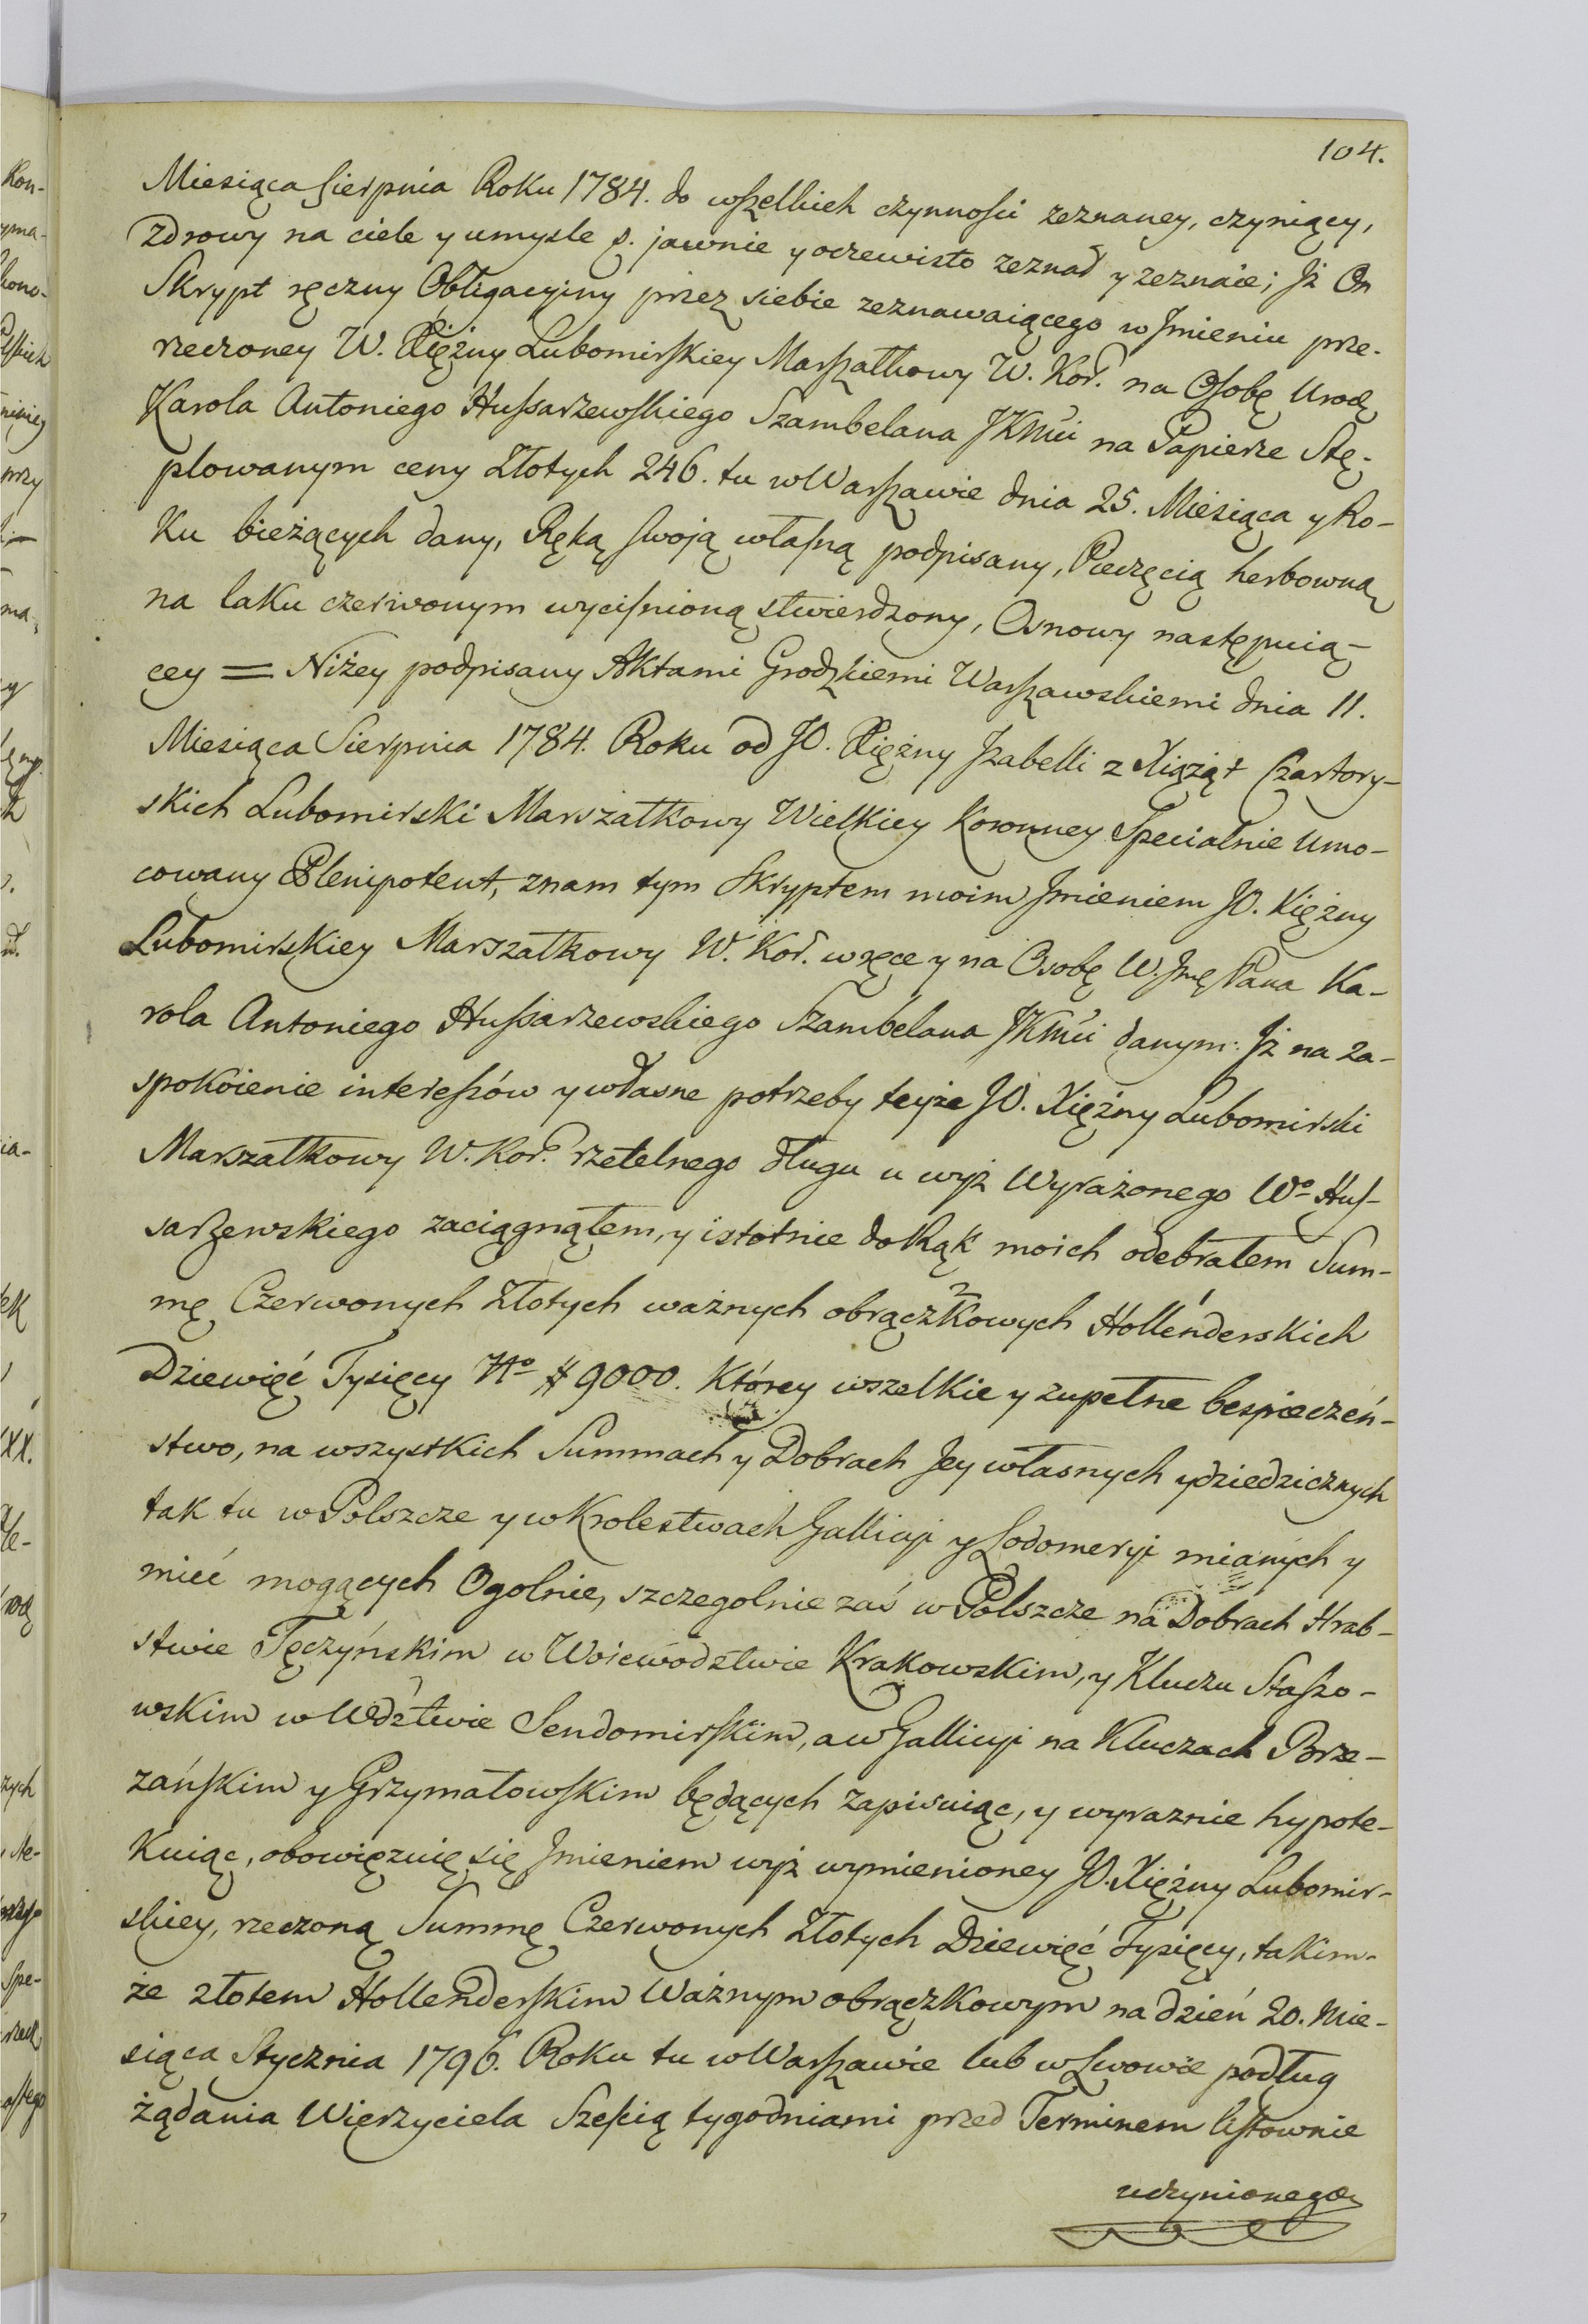 104.
Miesiąca Sierpnia Roku 1784. do wszelkich czynnosci zeznaney, czyniący,
Zdrowy na ciele y umysle p. jawnie y oczewisto zeznał y zeznaie; Jż On
Skrypt ręczny Obligacyjny przez siebie zeznawaiącego w Jmieniu prze-
rzeczoney W. Xiężny Lubomirskiey Marszałkowy W. Kor. na Osobę Urodz
Karola Antoniego Hussarzewskiego Szambelana JKMci na Papierze Stę-
plowanym ceny Złotych 246. tu w Warszawie dnia 25. Miesiąca y Ro-
ku bieżących dany, Ręką swoją własną podpisany, Pieczęcią herbowną
na laku czerwonym wycisnioną stwierdzony, Osnowy następuią-
cey = Niżey podpisany Aktami Grodzkiemi Warszawskiemi dnia 11.
Miesiąca Sierpnia 1784. Roku od JO. Xiężny Jzabelli z Xiążąt Czartory-
skich Lubomirski Marszałkowy Wielkiey Koronney Specialnie Umo-
cowany Plenipotent, znam tym Skryptem moim Jmieniem JO. Xiężny
Lubomirskiey Marszałkowy W. Kor. w ręce y na Osobę W. Jmę Pana Ka-
rola Antoniego Hussarzewskiego Szambelana JKMci danym: Jż na za-
spokoienie interessów y własne potrzeby teyże JO. Xiężny Lubomirski
Marszałkowy W. Kor. rzetelnego długu u wyż Wyrażonego Wo Hus-
sarzewskiego zaciągnąłem, y istotnie do Rąk moich odebrałem Sum-
mę Czerwonych Złotych ważnych obrączkowych Hollenderskich
Dziewięć Tysięcy No # 9000. Którey wszelkie y zupełne bespieczeń-
stwo, na wszystkich Summach y Dobrach Jey własnych y dziedzicznych
tak tu w Polszcze y w Krolestwach Gallicyi y Lodomeryi mianych y
mieć mogących Ogolnie, szczegolnie zaś w Polszcze na Dobrach Hrab-
stwie Tęczyńskim w Woiewodztwie Krakowskim, y Kluczu Staszo-
wskim w Wdztwie Sendomirskim, a w Gallicyi na Kluczach Brze-
zańskim y Grzymałowskim będących zapisuiąc, y wyraznie hypote-
kuiąc, obowięzuię się Jmieniem wyż wymienioney JO. Xiężny Lubomir-
skiey, rzeczoną Summę Czerwonych Złotych Dziewięć Tysięcy, takim-
że złotem Hollenderskim Ważnym obrączkowym na dzień 20. Mie-
siąca Stycznia 1796. Roku tu w Warszawie lub w Lwowie podług
żądania Wierzyciela Szescią tygodniami przed Terminem listownie
uczynionego